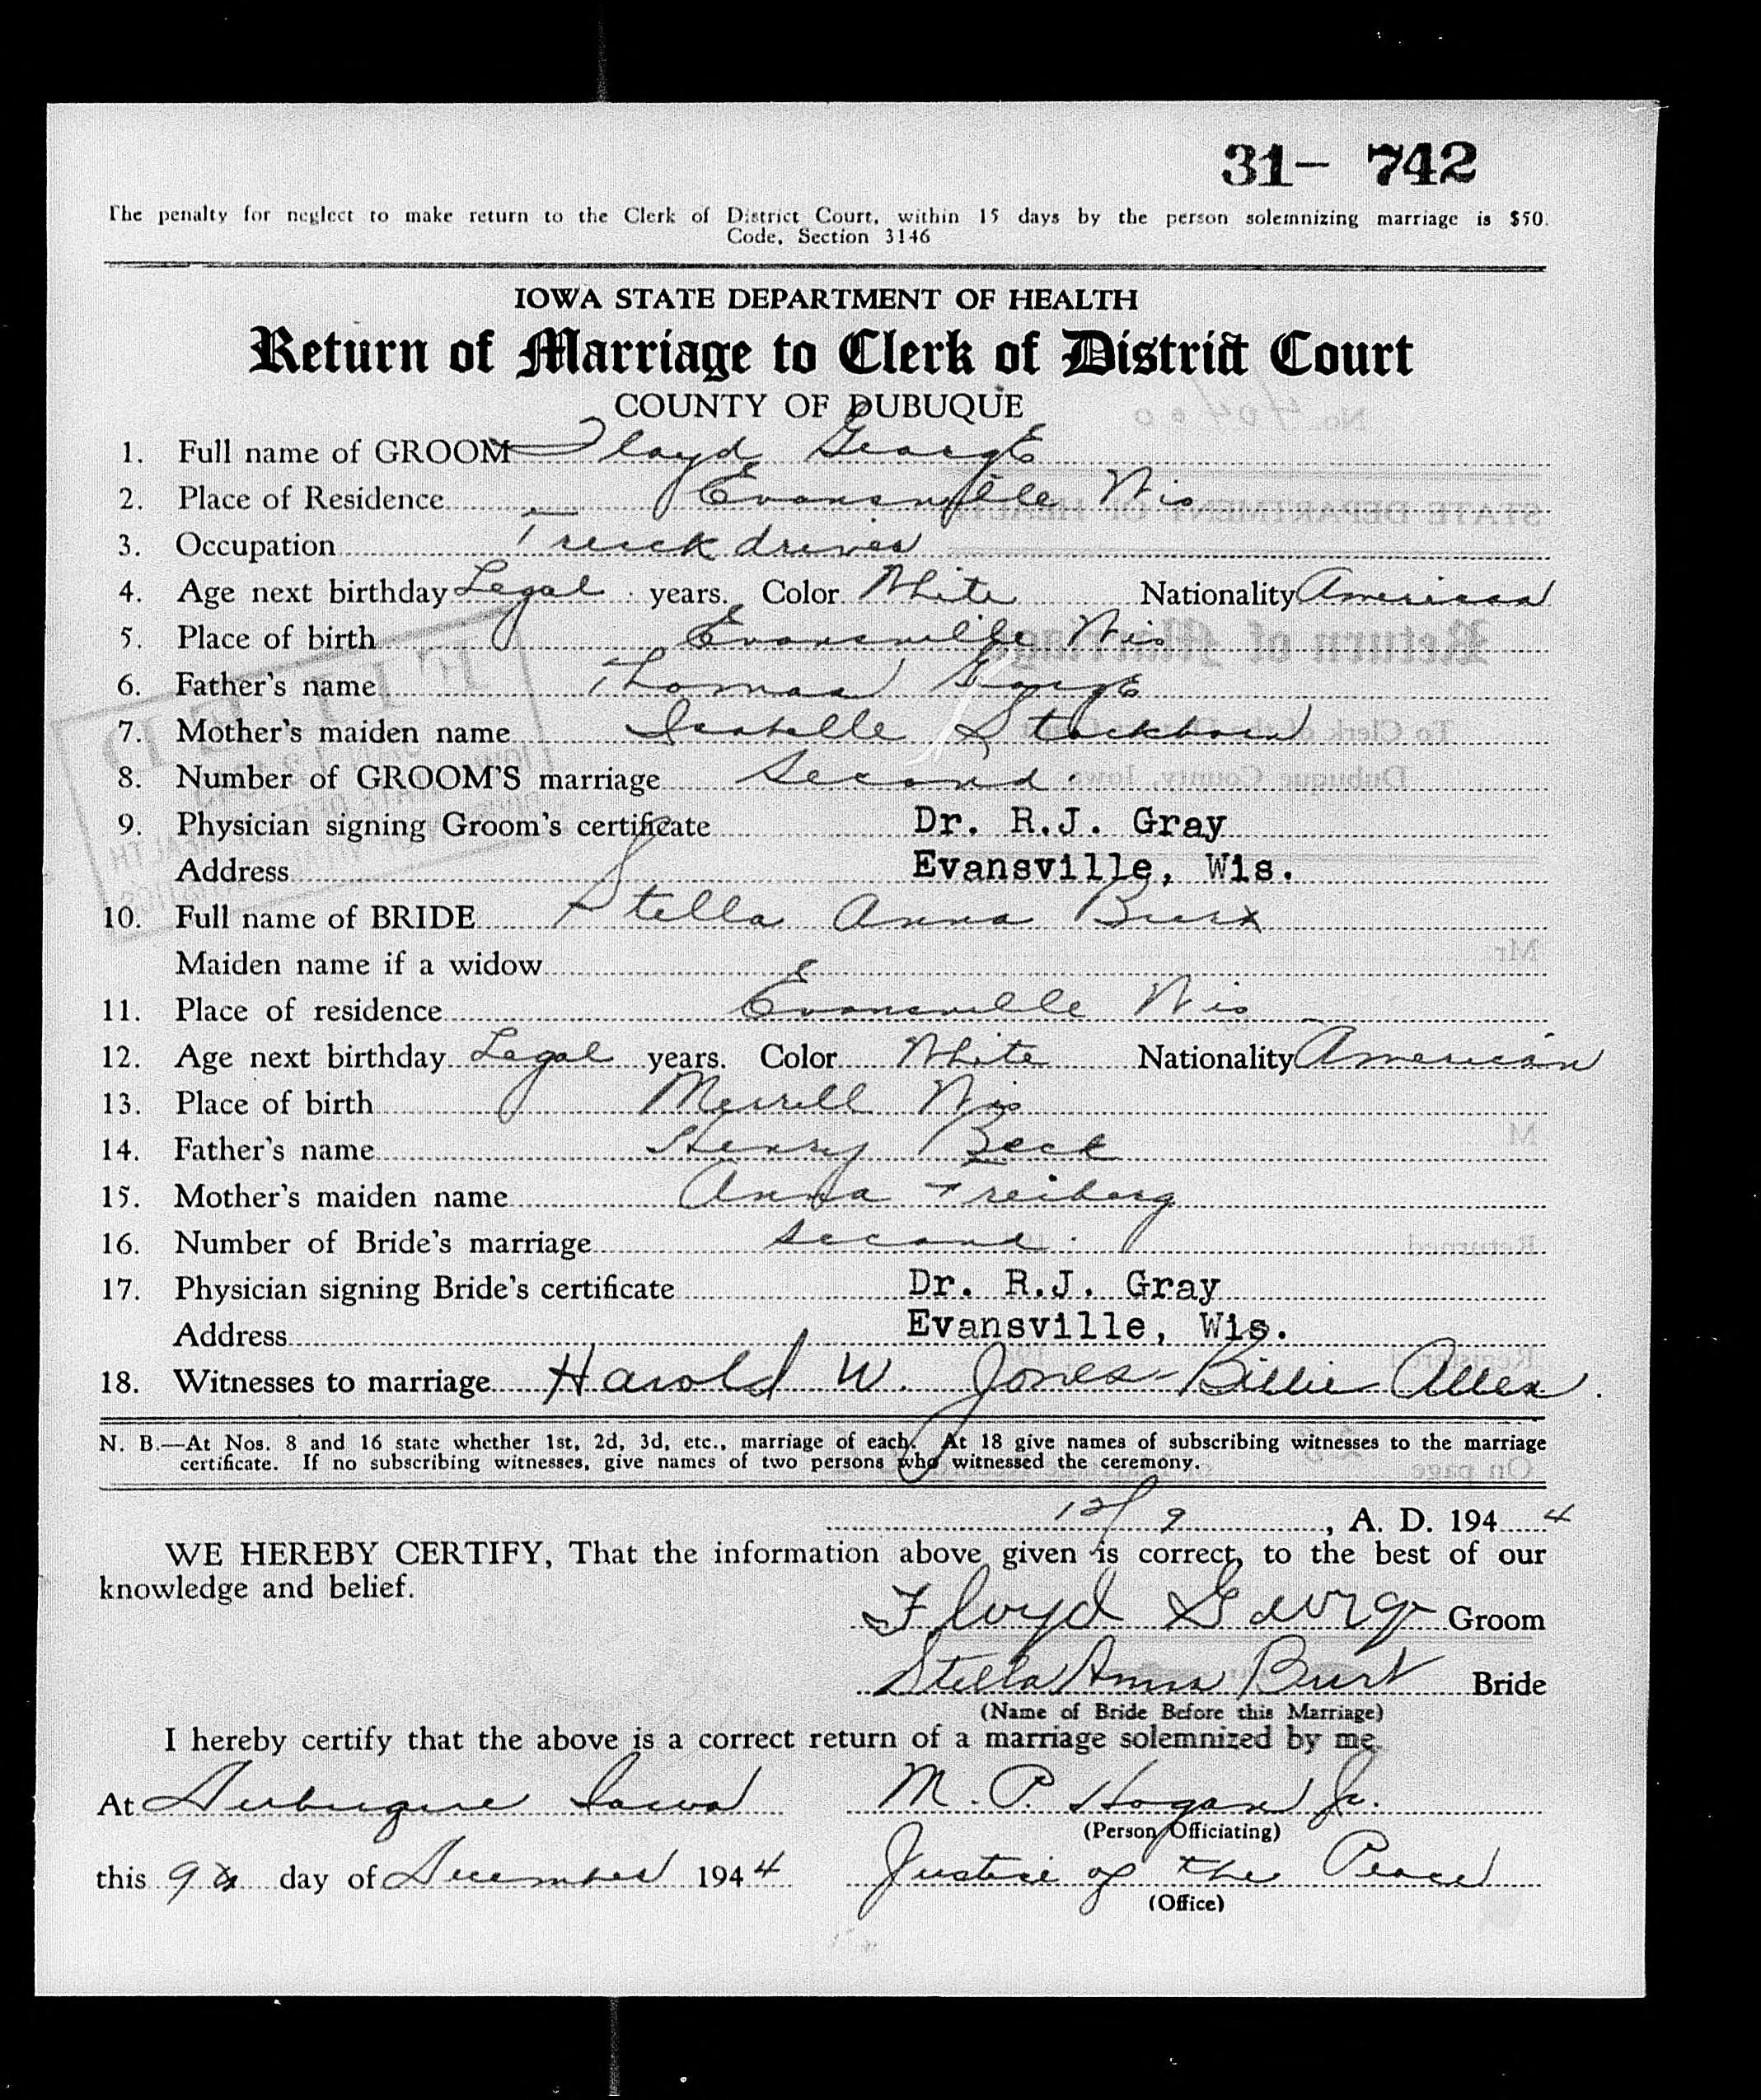 31- 742
The penalty for neglect to make return to the Clerk of District Court, within 15 days by the person solemnizing marriage is $50.
Code, Section 3146
IOWA STATE DEPARTMENT OF HEALTH
Return of Marriage to Clerk of District Court
COUNTY OF DUBUQUE
1. Full name of GROOM Floyd George
2. Place of Residence Evansville Wis
3. Occupation Truck driver
4. Age next birthday Legal years. Color White Nationality American
5. Place of birth Evansville Wis
6. Father's name Thomas George
7. Mother's maiden name Isabelle
8. Number of GROOM'S marriage Second.
9. Physician signing Groom's certificate Dr. R.J. Gray
Address Evansville, Wis.
10. Full name of BRIDE Stella Anna Burt
Maiden name if a widow
11. Place of residence Evansville Wis
12. Age next birthday Legal years. Color White Nationality American
13. Place of birth Merrill Wis
14. Father's name Henry Beck
15. Mother's maiden name Anna Freiberg
16. Number of Bride's marriage second.
17. Physician signing Bride's certificate Dr. R.J. Gray
Address Evansville, Wis.
18. Witnesses to marriage Harold W. Jones - Billie Allen.
N. B.—At Nos. 8 and 16 state whether 1st, 2d, 3d, etc., marriage of each. At 18 give names of subscribing witnesses to the marriage
certificate. If no subscribing witnesses, give names of two persons who witnessed the ceremony.
12/9, A. D. 1944
WE HEREBY CERTIFY, That the information above given is correct, to the best of our
knowledge and belief.
Floyd George Groom
Stella Anna Burt Bride
(Name of Bride Before this Marriage)
I hereby certify that the above is a correct return of a marriage solemnized by me
At Dubuque Iowa M. P. Hogan Jr.
(Person Officiating)
this 9th day of December 1944 Justice of the Peace
(Office)